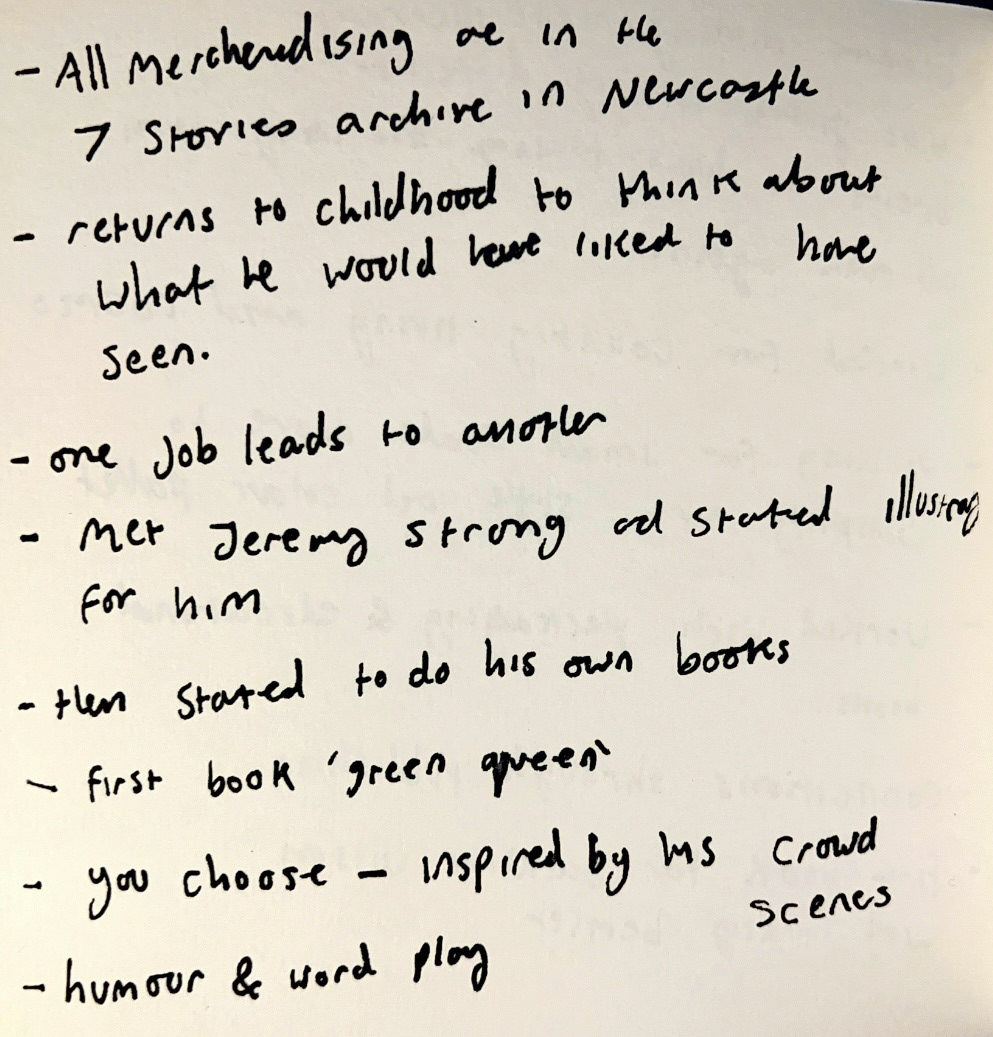 - All Merchendising are in the
7 Stories archive in Newcastle
- returns to childhood to think about
what he would have liked to have
seen.
- one Job leads to another
- Met Jeremy strong ad started
for him
- then started to do his own books
- first book 'green queen'
- you choose - inspired by his crowd
scenes
- humour & word play